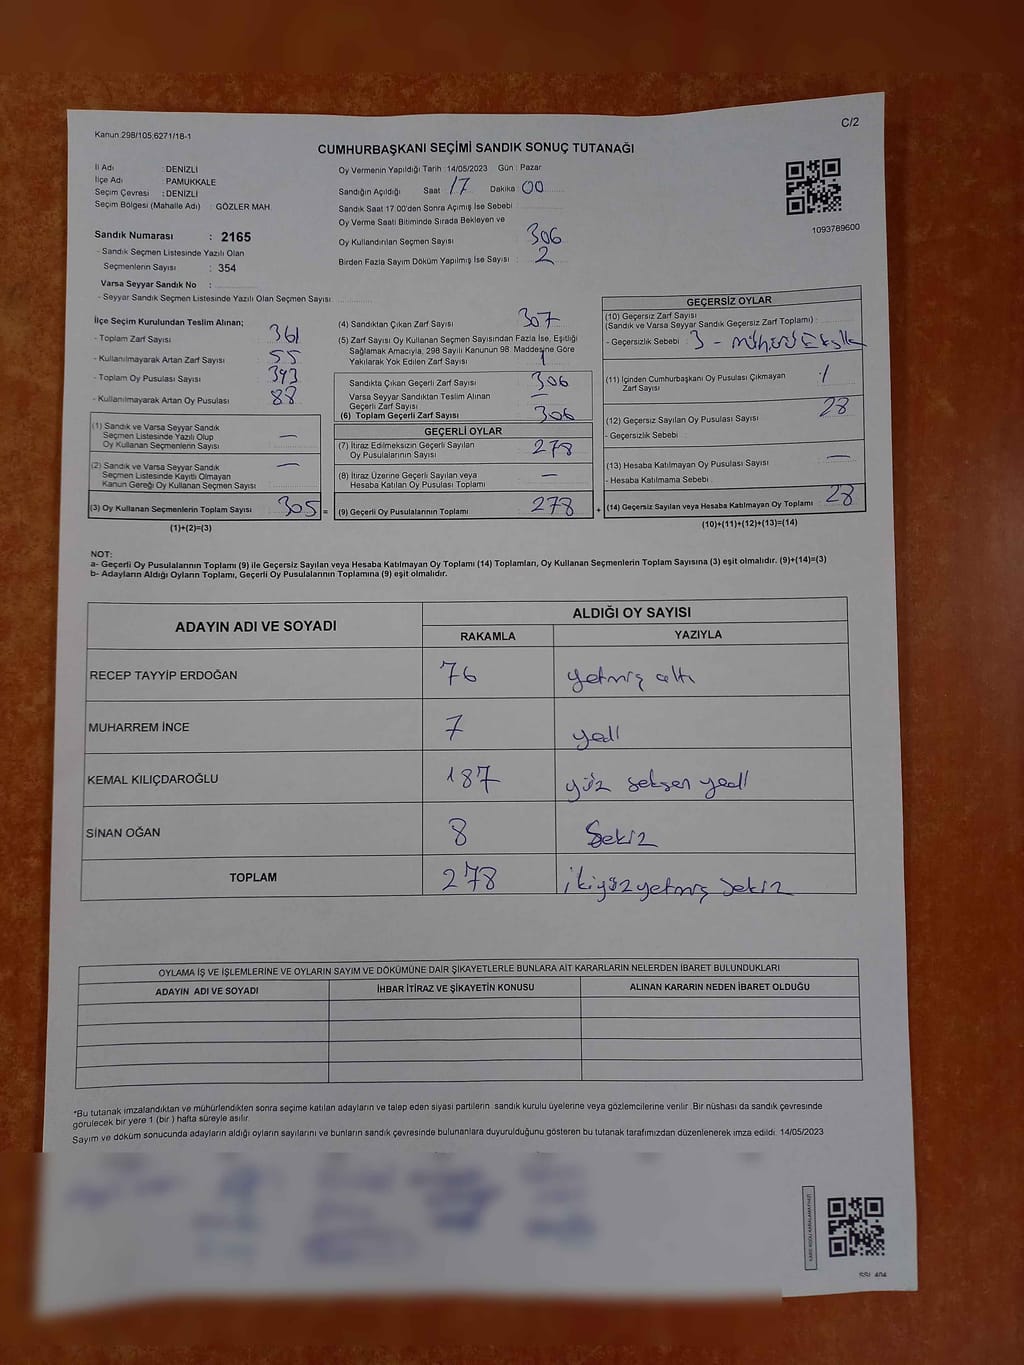 Kanun 298/105;6271/18-1
C/2
CUMHURBAŞKANI SEÇİMİ SANDIK SONUÇ TUTANAĞI
İl Adı : DENİZLİ
İlçe Adı : PAMUKKALE
Seçim Çevresi : DENİZLİ
Seçim Bölgesi (Mahalle Adı) : GÖZLER MAH.
Sandık Numarası : 2165
- Sandık Seçmen Listesinde Yazılı Olan
Seçmenlerin Sayısı : 354
Varsa Seyyar Sandık No :
- Seyyar Sandık Seçmen Listesinde Yazılı Olan Seçmen Sayısı
Oy Vermenin Yapıldığı Tarih :14/05/2023 Gün : Pazar
Sandığın Açıldığı Saat 17 Dakika 00
Sandık Saat 17:00'den Sonra Açımış İse Sebebi
Oy Verme Saati Bitiminde Sırada Bekleyen ve
Oy Kullandırılan Seçmen Sayısı : 306
Birden Fazla Sayım Döküm Yapılmış İse Sayısı : 2
1093789600
İlçe Seçim Kurulundan Teslim Alınan;
- Toplam Zarf Sayısı 361
- Kullanılmayarak Artan Zarf Sayısı 55
- Toplam Oy Pusulası Sayısı 393
- Kullanılmayarak Artan Oy Pusulası 88
(1) Sandık ve Varsa Seyyar Sandık
Seçmen Listesinde Yazılı Olup
Oy Kullanan Seçmenlerin Sayısı —
(2) Sandık ve Varsa Seyyar Sandık
Seçmen Listesinde Kayıtlı Olmayan
Kanun Gereği Oy Kullanan Seçmen Sayısı —
(3) Oy Kullanan Seçmenlerin Toplam Sayısı 305 =
(1)+(2)=(3)
(4) Sandıktan Çıkan Zarf Sayısı 307
(5) Zarf Sayısı Oy Kullanan Seçmen Sayısından Fazla İse, Eşitliği
Sağlamak Amacıyla, 298 Sayılı Kanunun 98. Maddesine Göre
Yakılarak Yok Edilen Zarf Sayısı 1
Sandıkta Çıkan Geçerli Zarf Sayısı 306
Varsa Seyyar Sandıktan Teslim Alınan
Geçerli Zarf Sayısı —
(6) Toplam Geçerli Zarf Sayısı 306
GEÇERLİ OYLAR
(7) İtiraz Edilmeksizin Geçerli Sayılan
Oy Pusulalarının Sayısı 278
(8) İtiraz Üzerine Geçerli Sayılan veya
Hesaba Katılan Oy Pusulası Toplamı —
(9) Geçerli Oy Pusulalarının Toplamı 278 +
GEÇERSİZ OYLAR
(10) Geçersiz Zarf Sayısı
(Sandık ve Varsa Seyyar Sandık Geçersiz Zarf Toplamı) :
- Geçersizlik Sebebi : 3 -
(11) İçinden Cumhurbaşkanı Oy Pusulası Çıkmayan
Zarf Sayısı
(12) Geçersiz Sayılan Oy Pusulası Sayısı 28
- Geçersizlik Sebebi
(13) Hesaba Katılmayan Oy Pusulası Sayısı —
- Hesaba Katılmama Sebebi
(14) Geçersiz Sayılan veya Hesaba Katılmayan Oy Toplamı 28
(10)+(11)+(12)+(13)=(14)
NOT:
a- Geçerli Oy Pusulalarının Toplamı (9) ile Geçersiz Sayılan veya Hesaba Katılmayan Oy Toplamı (14) Toplamları, Oy Kullanan Seçmenlerin Toplam Sayısına (3) eşit olmalıdır. (9)+(14)=(3)
b- Adayların Aldığı Oyların Toplamı, Geçerli Oy Pusulalarının Toplamına (9) eşit olmalıdır.
ADAYIN ADI VE SOYADI
ALDIĞI OY SAYISI
RAKAMLA YAZIYLA
RECEP TAYYİP ERDOĞAN 76 yetmiş altı
MUHARREM İNCE 7 yedi
KEMAL KILIÇDAROĞLU 187 yüz seksen yedi
SİNAN OĞAN 8 Sekiz
TOPLAM 278 ikiyüzyetmiş Sekiz
OYLAMA İŞ VE İŞLEMLERİNE VE OYLARIN SAYIM VE DÖKÜMÜNE DAİR ŞİKAYETLERLE BUNLARA AİT KARARLARIN NELERDEN İBARET BULUNDUKLARI
ADAYIN ADI VE SOYADI İHBAR İTİRAZ VE ŞİKAYETİN KONUSU ALINAN KARARIN NEDEN İBARET OLDUĞU
*Bu tutanak imzalandıktan ve mühürlendikten sonra seçime katılan adayların ve talep eden siyasi partilerin sandık kurulu üyelerine veya gözlemcilerine verilir. Bir nüshası da sandık çevresinde
görülecek bir yere 1 (bir ) hafta süreyle asılır.
Sayım ve döküm sonucunda adayların aldığı oyların sayılarını ve bunların sandık çevresinde bulunanlara duyurulduğunu gösteren bu tutanak tarafımızdan düzenlenerek imza edildi. 14/05/2023